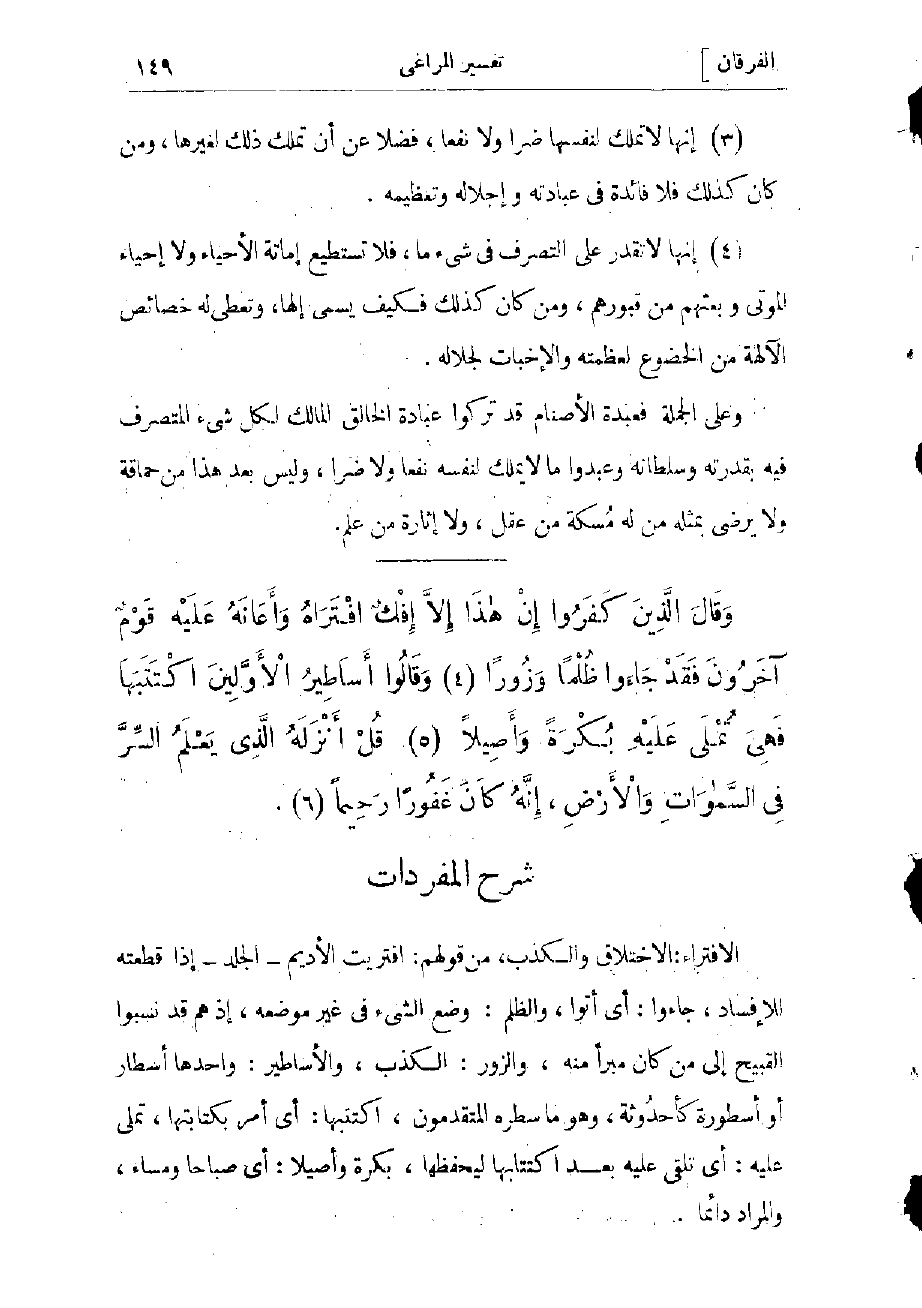 الفرقان ]
تفسير المراغى
١٤٩
(٣) إنها لا تملك لنفسها ضرا ولا نفعا ، فضلا عن أن تملك ذلك لغيرها ، ومن
كان كذلك فلا فائدة فى عبادته وإجلاله وتعظيمه .
(٤) إنها لا تقدر على التصرف فى شىء ما ، فلا تستطيع إماتة الأحياء ولا إحياء
الموتى وبعثهم من قبورهم ، ومن كان كذلك فكيف يسمى إلها ، وتعطى له خصائص
الآلهة من الخضوع لعظمته والإخبات لجلاله .
وعلى الجملة فعبدة الأصنام قد تركوا عبادة الخالق المالك لكل شىء المتصرف
فيه بقدرته وسلطانه وعبدوا ما لا يملك لنفسه نفعا ولا ضرا ، وليس بعد هذا من حماقة
ولا يرضى بمثله من له مُسكة من عقل ، ولا إثارة من علم.
وَقَالَ الَّذِينَ كَفَرُوا إِنْ هٰذَا إِلاَّ إِفْكٌ افْتَرَاهُ وَأَعَانَهُ عَلَيْهِ قَوْمٌ
آخَرُونَ فَقَدْ جَاءوا ظُلْمًا وَزُورًا (٤) وَقَالُوا أَسَاطِيرُ الْأَوَّلِينَ اكْتَتَبَهَا
فَهِىَ تُمْلَى عَلَيْهِ بُكْرَةً وَأَصِيلاً (٥) قُلْ أَنْزَلَهُ الَّذِى يَعْلَمُ السِّرَّ
فِى السَّمٰوَاتِ وَالْأَرْضِ ، إِنَّهُ كَانَ غَفُورًا رَحِيماً (٦) .
شرح المفردات
الافتراء : الاختلاق والكذب، من قولهم : افتريت الأديم ــ الجلد ــ إذا قطعته
للإفساد ، جاءوا : أى أتوا ، والظلم : وضع الشىء فى غير موضعه ، إذ هم قد نسبوا
القبيح إلى من كان مبرأ منه ، والزور : الكذب ، والأساطير : واحدها أسطار
أو أسطورة كأحدُوثة ، وهو ما سطره المتقدمون ، اكتتبها : أى أمر بكتابتها ، تملى
عليه : أى تلقى عليه بعد اكتتابها ليحفظها ، بكرة وأصيلا : أى صباحا ومساء ،
والمراد دائما .